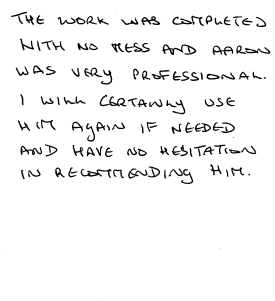 THE WORK WAS COMPLETED
WITH NO MESS AND AARON
WAS VERY PROFESSIONAL.
I WILL CERTAINLY USE
HIM AGAIN IF NEEDED
AND HAVE NO HESITATION
IN RECOMMENDING HIM.